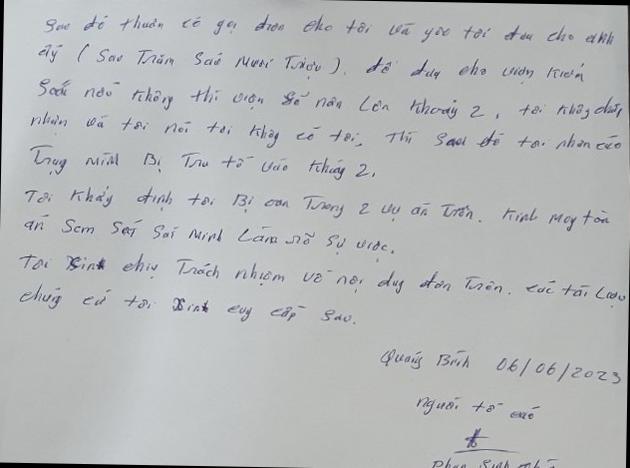 Sao đó thuân có gọi điện cho tôi và yêo tôi đưa cho anh
ấy (Sao Trăm Sáo Mươi Triệu). để đưa cho viện kiểm
Soát nếu không thì viện sẻ nân Lên Khoảy 2, tôi không chấp
nhận và tôi nói tôi không có tội, Thì sau đó tôi nhân cáo
Trạng mình Bị Truy tố vào Khoảy 2.
Tôi Khảy định tôi Bị oan Trong 2 vụ án Trên. Kính moy tòa
án Sem Sét Sát Minh Làm rõ Sự việc.
Tôi Xinh chịu Trách nhiệm về nội duy đơn Trên. các tài Liệu
chứy cứ tôi Xinh cuy cấp Sao.
Quảng Bình 06/06/2023
người tố cáo
Phan Sinh